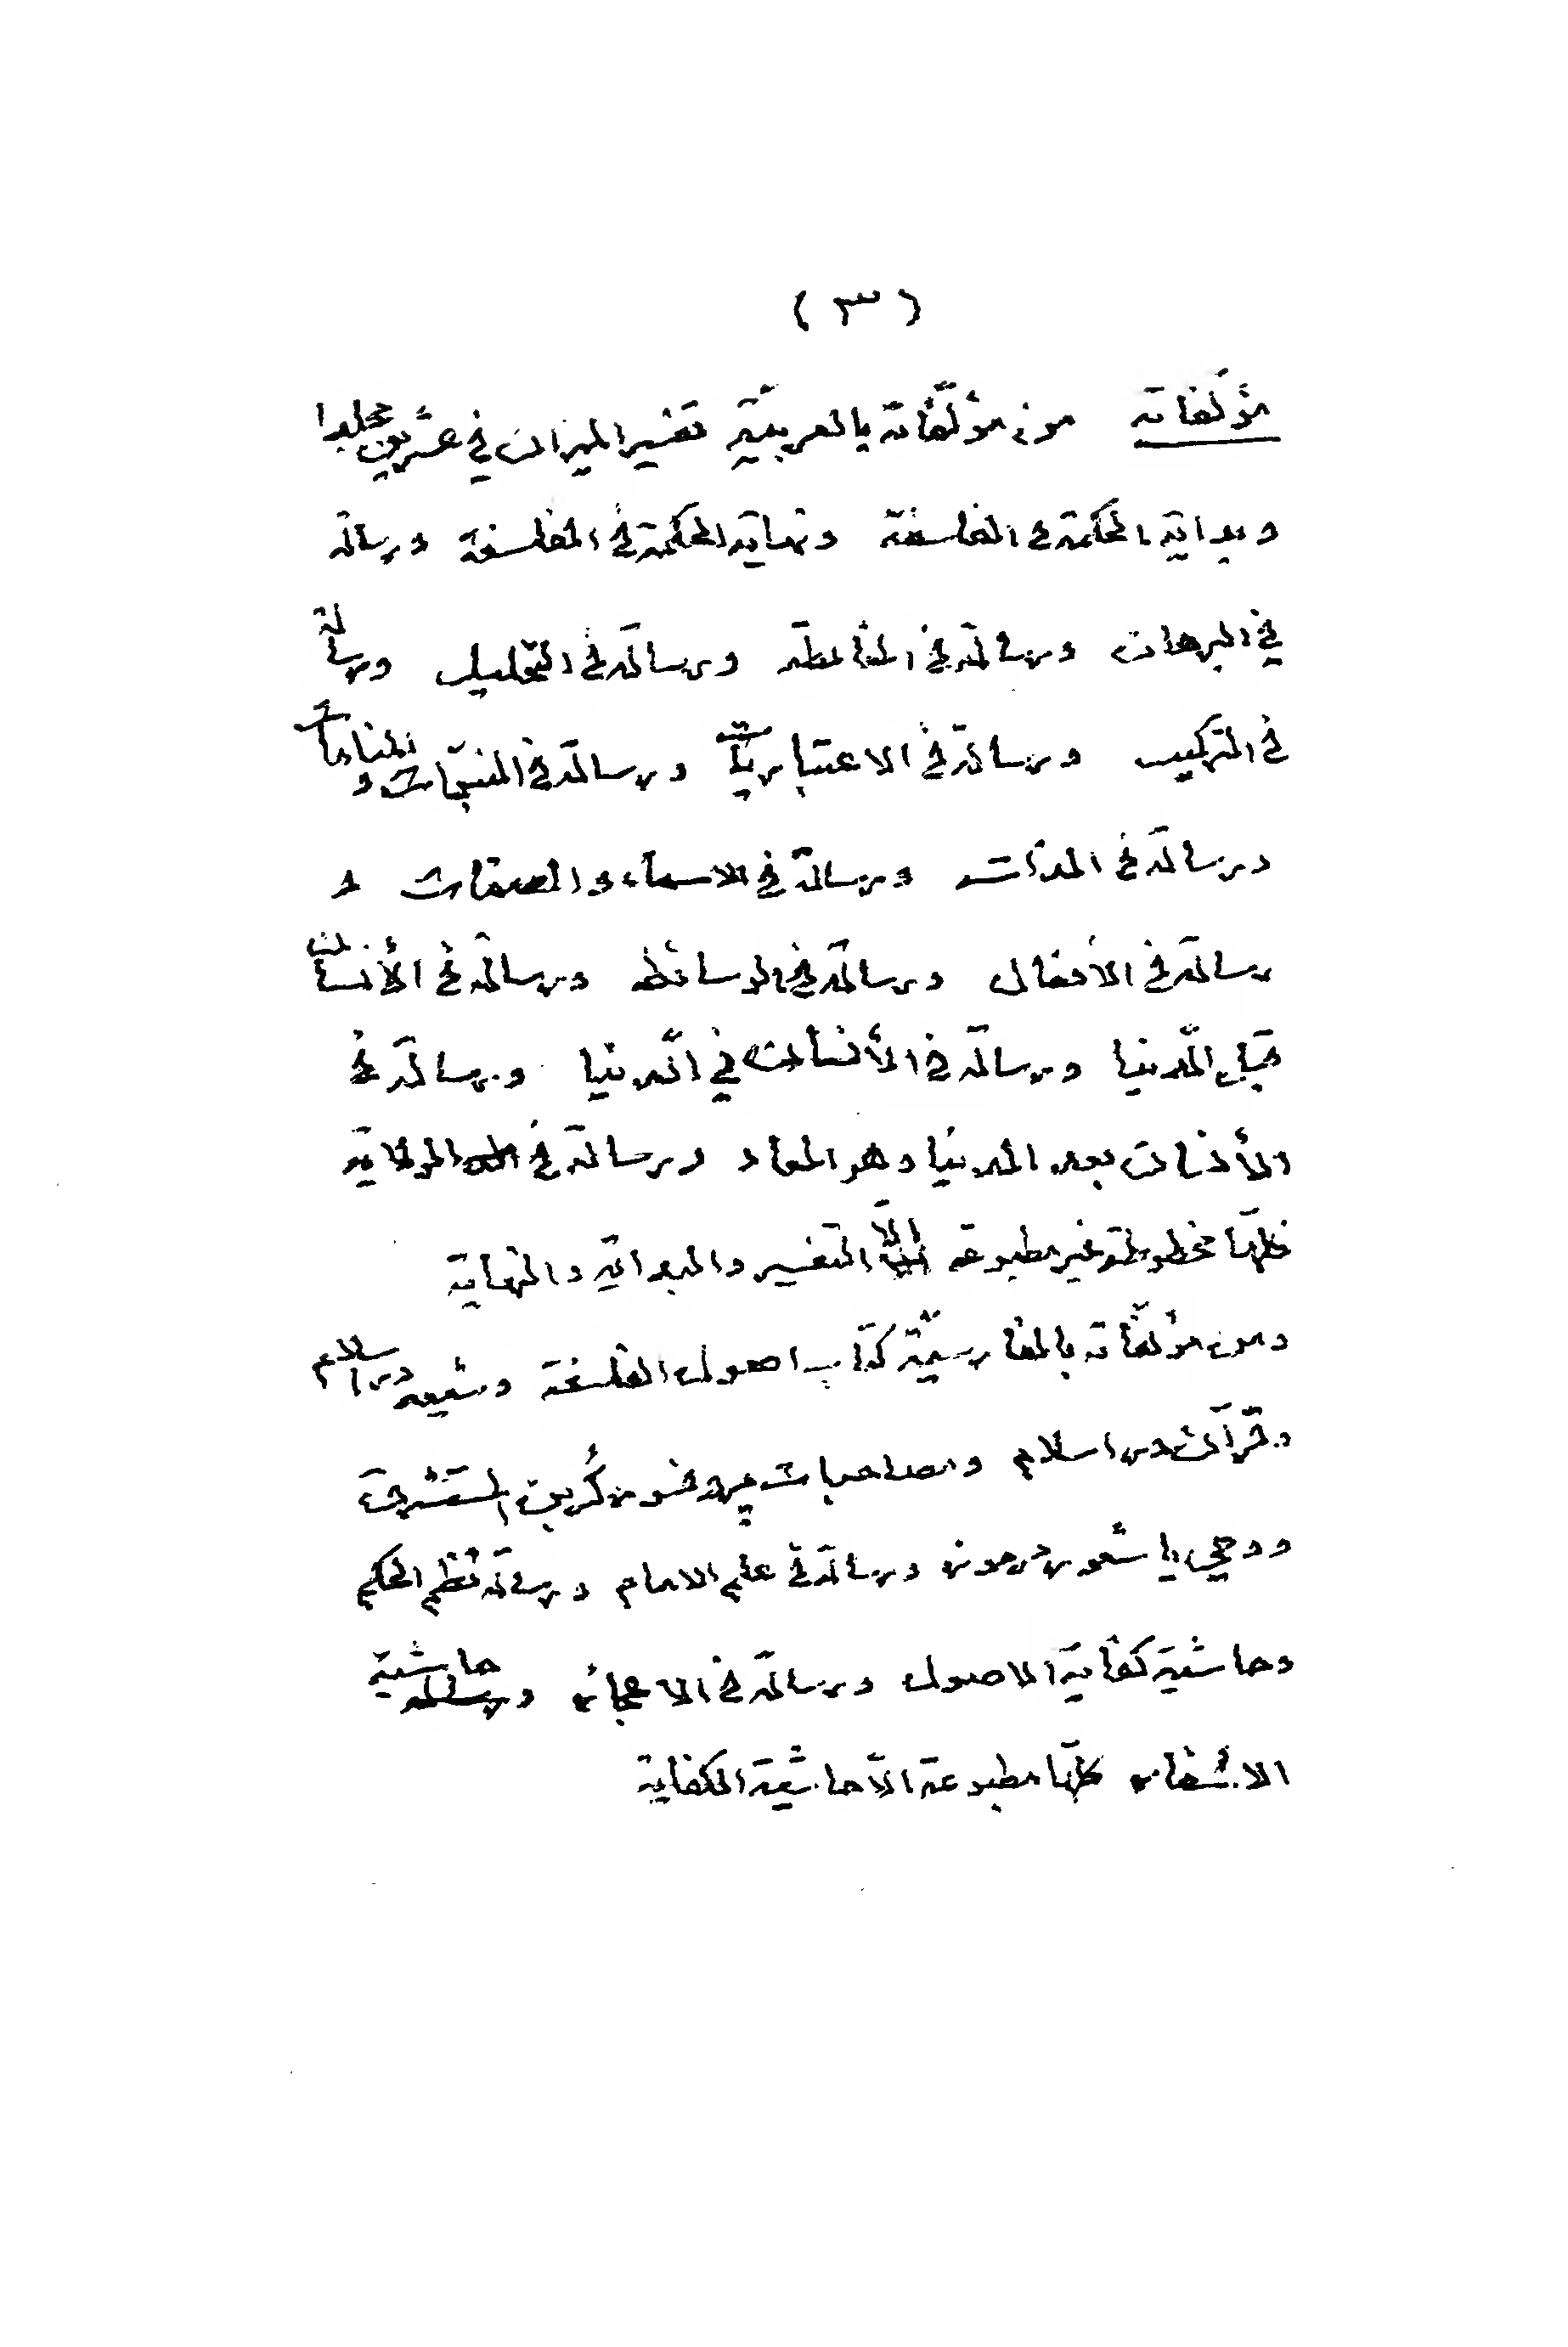 (٣)
مؤلّفاته من مؤلّفاته بالعربيّة تفسير الميزان في عشرين مجلدا
وبداية الحكمة في الفلسفة ونهاية الحكمة في الفلسفة ورسالة
في البرهان ورسالة في المغالطة ورسالة في التحليل ورسالة
في التركيب ورسالة في الاعتباريّات ورسالة في النبوّات والمنامات
ورسالة في الذات ورسالة في الاسماء والصفات و
رسالة في الأفعال ورسالة في الوسائط ورسالة في الأنسان
قبل الدّنيا ورسالة في الأنسان في الدّنيا ورسالة في
الأنسان بعد الدنيا وهو المعاد ورسالة في الولاية
كلّها مخطوطة غير مطبوعة الّا التفسير والبداية والنهاية
ومن مؤلفاته بالفارسيّة كتاب اصول الفلسفة وشيعه در اسلام
وقرآن در اسلام ومصاحبات پروفسور كُربن المستشرق
ووحي يا شعور مرموز ورسالة في علم الامام ورسالة نظم الحكم
وحاشية كفاية الاصول ورسالة في الاعجاز وحاشية
الاسفار كلّها مطبوعة الّا حاشية الكفاية